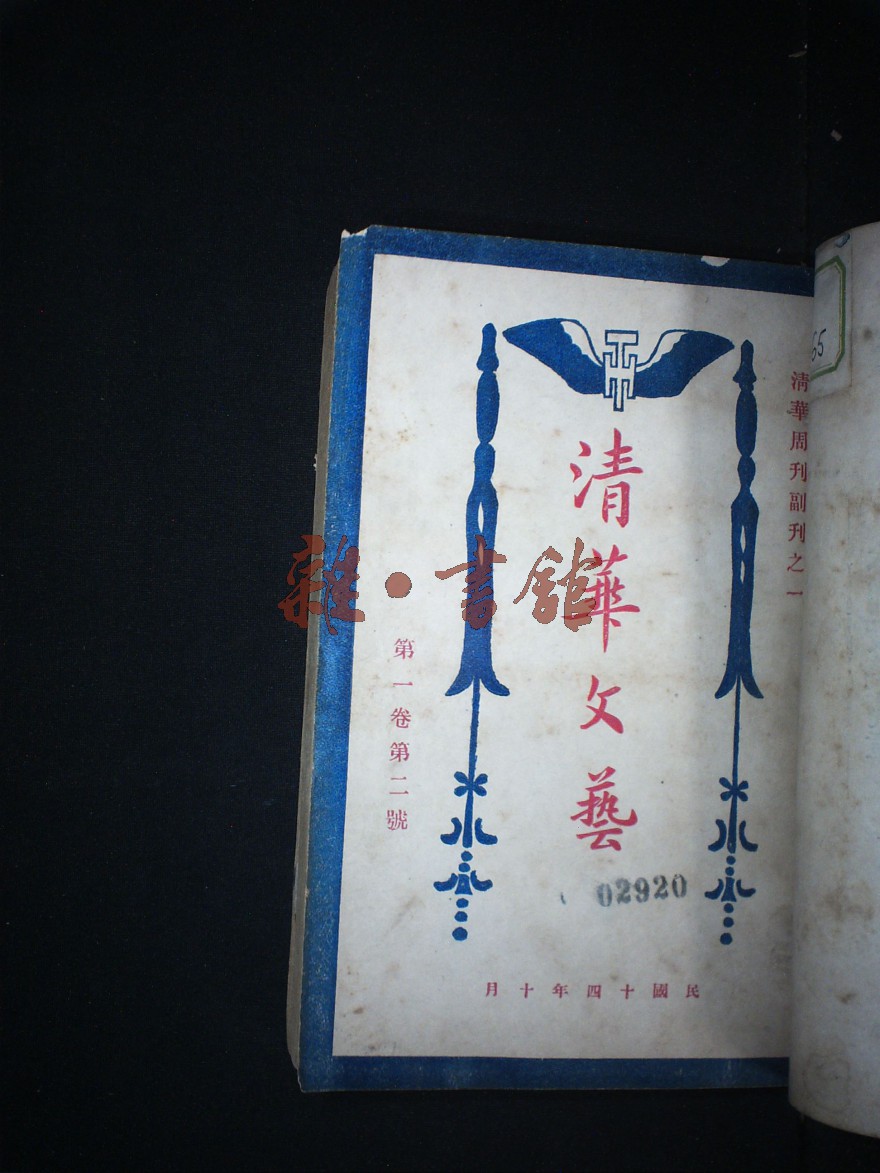 清華周刊副刊之一
清華文藝
第一卷第二號
02920
民國十四年十月
雜·書館
55
TH